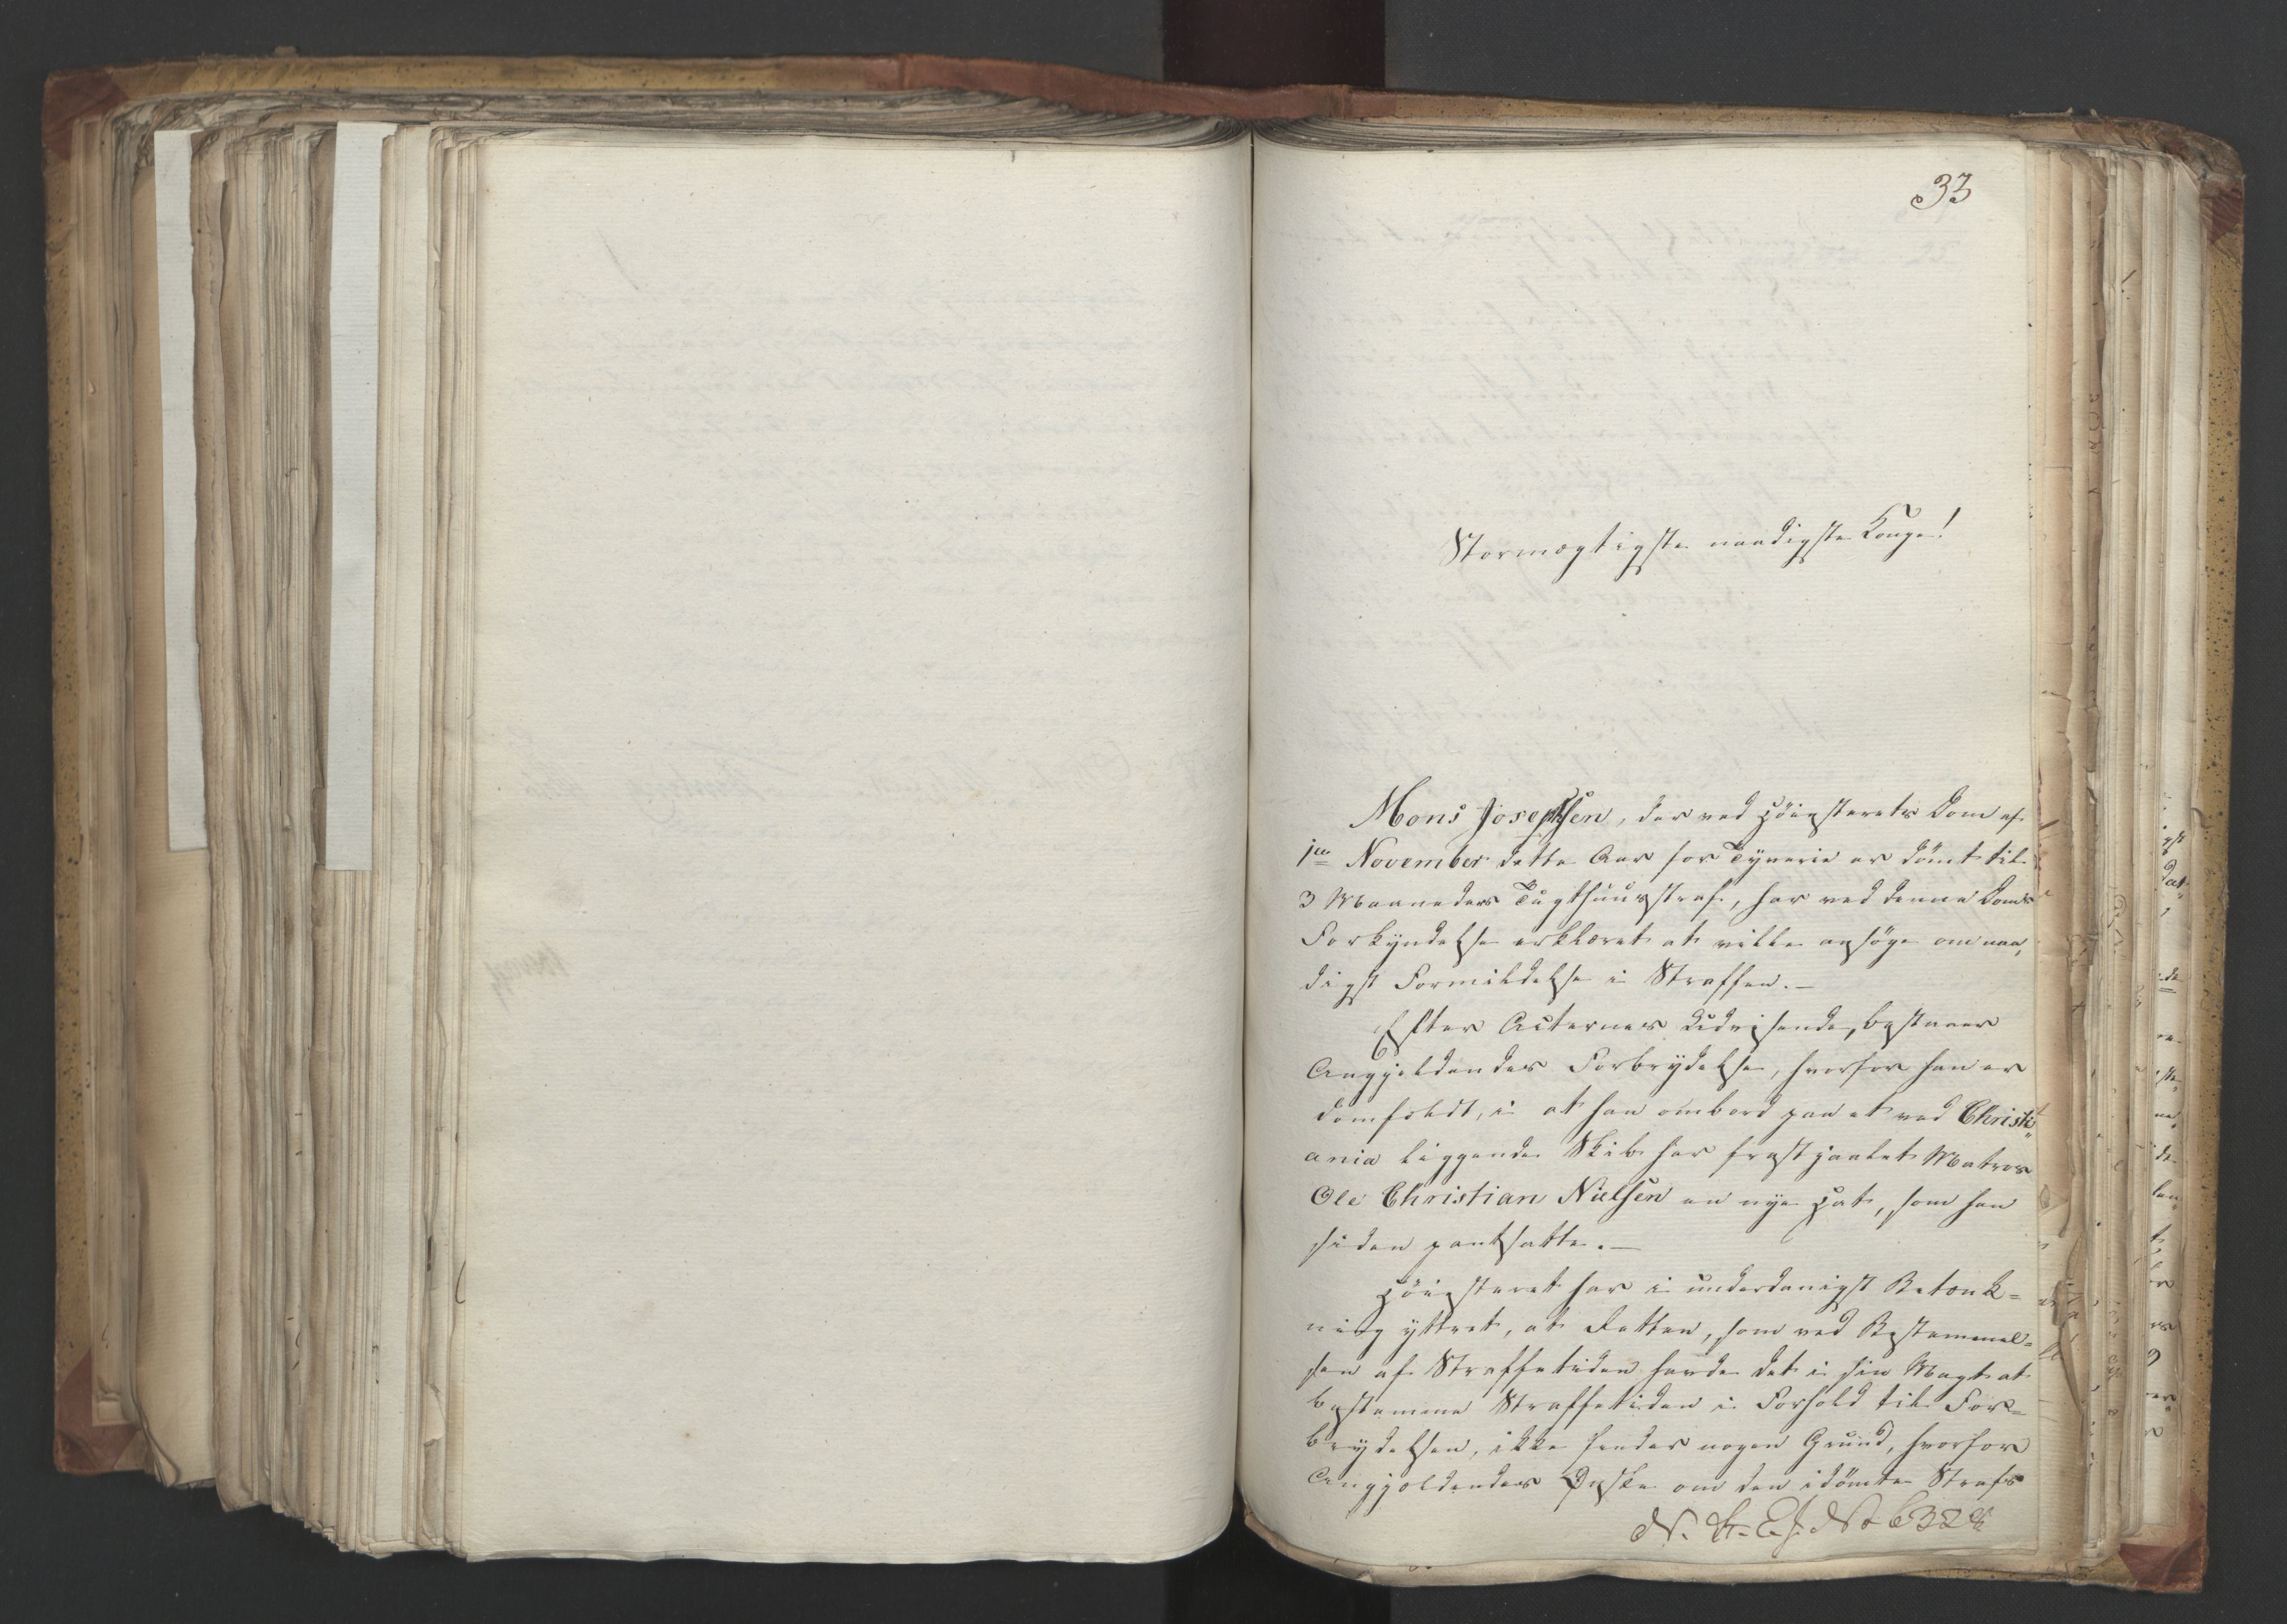 33
Stormægtigste naadigste Konge!
Mons Josephsen, der ved Höiesterets Dom af
1ste November dette Aar for Tyverie er dömt til
3 Maaneders Tugthuusstraf, har ved denne Doms
Forkyndelse erklæret at ville ansöge om naa„
digst Formildelse i Straffen.—
Efter Acternes Udvisende, bestaaer
Angjeldendes Forbrydelse, hvorfor han er
domfældt, i at han ombord paa et ved Christi„
ania liggende Skib har frastjaalet Matros
Ole Christian Nielsen en nye Hat, som han
siden pantsatte.—
Höiesteret har i underdanigst Betænk=
ning yttret, at Retten, som ved Bestemmel=
sen af Straffetiden havde det i sin Magt at
bestemme Straffetiden i Forhold til For=
brydelsen, ikke finder nogen Grund, hvorfor
Angjeldendes Ønske om den idömte Strafs